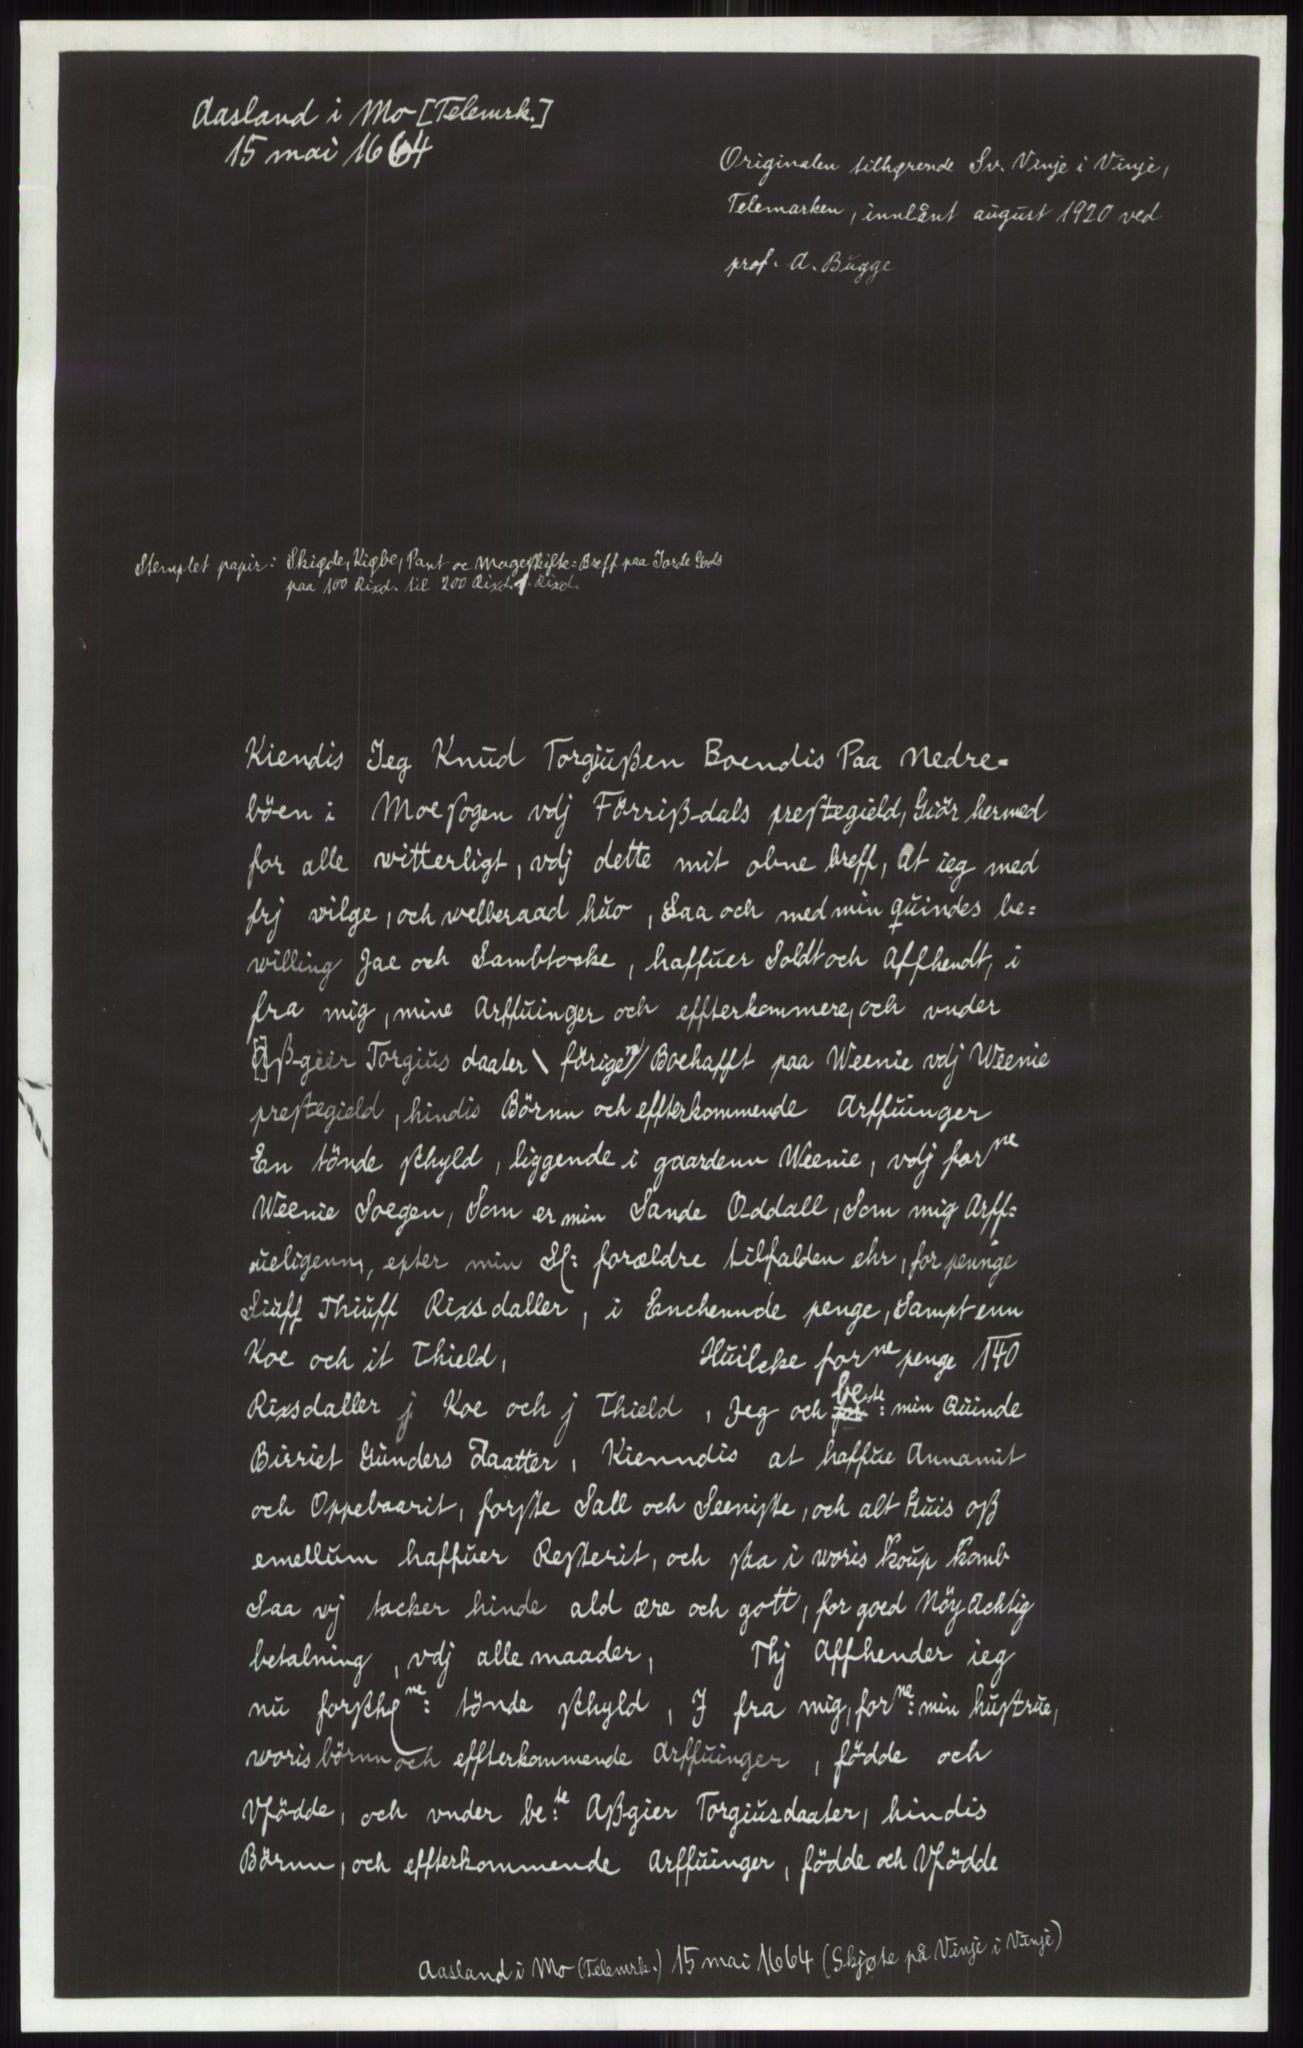 Aasland i Mo [Telemrk.]
15 mai 1664
Originalen tilhørende Sv. Vinje i Vinje,
Telemarken, innlånt august 1920 ved
prof. A. Bugge
Stemplet papir: Skiøde, Kiøbe, Pant oc Mageskifte=Breff paa Jorde Gods
paa 100 Rixd. til 200 Rixd. 1. Rixd.
Kiendis Jeg Knud Torgiußen Boendis Paa Nedre=
böen i Moe sogen vdj Förriß-dals prestegield, Giör hermed
for alle witterligt, vdj dette mit obne breff, At ieg med
frj vilge, och velberaad huo, Saa och med min quindes be=
willing Jae och Sambtocke, haffuer Soldt och Affhendt, i
fra mig, mine Arffuinger och effterkommere, och vnder
[A]ß-gier Torgius daater \ förige / Boehafft paa Weenie vdj Weenie
prestegield, hindis Börnn och effterkommende Arffuinger
En tönde schyld, liggende i gaardenn Weenie, vdj for ne
Weenie Soegen, Som er min Sande Oddall, Som mig Arff=
ueligenn, epter min Sl: forældre tilfalden ehr, for penge
Siuff Thiuff Rixsdaller, i Enchennde penge, Sampt enn
Koe och it Thield, Huilcke for ne penge 140
Rixsdaller j Koe och j Thield, Jeg och be te: min Quinde
Birriet Gunders Daatter, Kienndis at haffue Annamit
och Oppebaarit, forste Sall och Seeniste, och alt huis oß
emellum haffuer Resterit, och staa i woris Koup Komb
Saa vj tacker hinde ald ære och gott, for goed Nöy Achtig
betalning, vdj alle maader, Thj Affhender ieg
nu forsch ne: tönde schyld, I fra mig, for ne: min hustrue,
woris börnn och effterkommende Arffuinger, födde och
Vfödde, och vnder be: te Aßgier Torgiusdaater, hindis
Börnn, och effterkommende Arffuinger, födde och Vfödde
Aasland i Mo (Telemrk.) 15 mai 1664 (Skjøte på Vinje i Vinje)